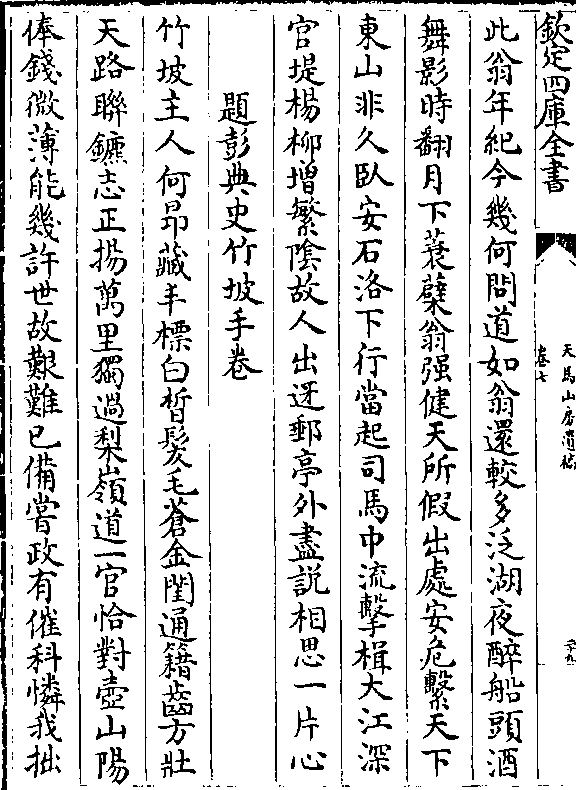 欽定四庫全書
天馬山房遺稿
卷七
此翁年紀今幾何問道如翁還較多泛湖夜醉船頭酒
舞影時翻月下蓑蘗翁强健天所假出處安危繫天下
東山非久臥安石洛下行當起司馬中流擊楫大江深
官堤楊柳增繁陰故人出迓郵亭外盡説相思一片心
題彭典史竹坡手卷
竹坡主人何昂藏丰標白晳髮毛蒼金閨通籍齒方壯
天路聯鑣志正揚萬里獨過梨嶺道一官恰對壺山陽
俸錢微薄能幾許世故艱難已備嘗政有催科憐我拙